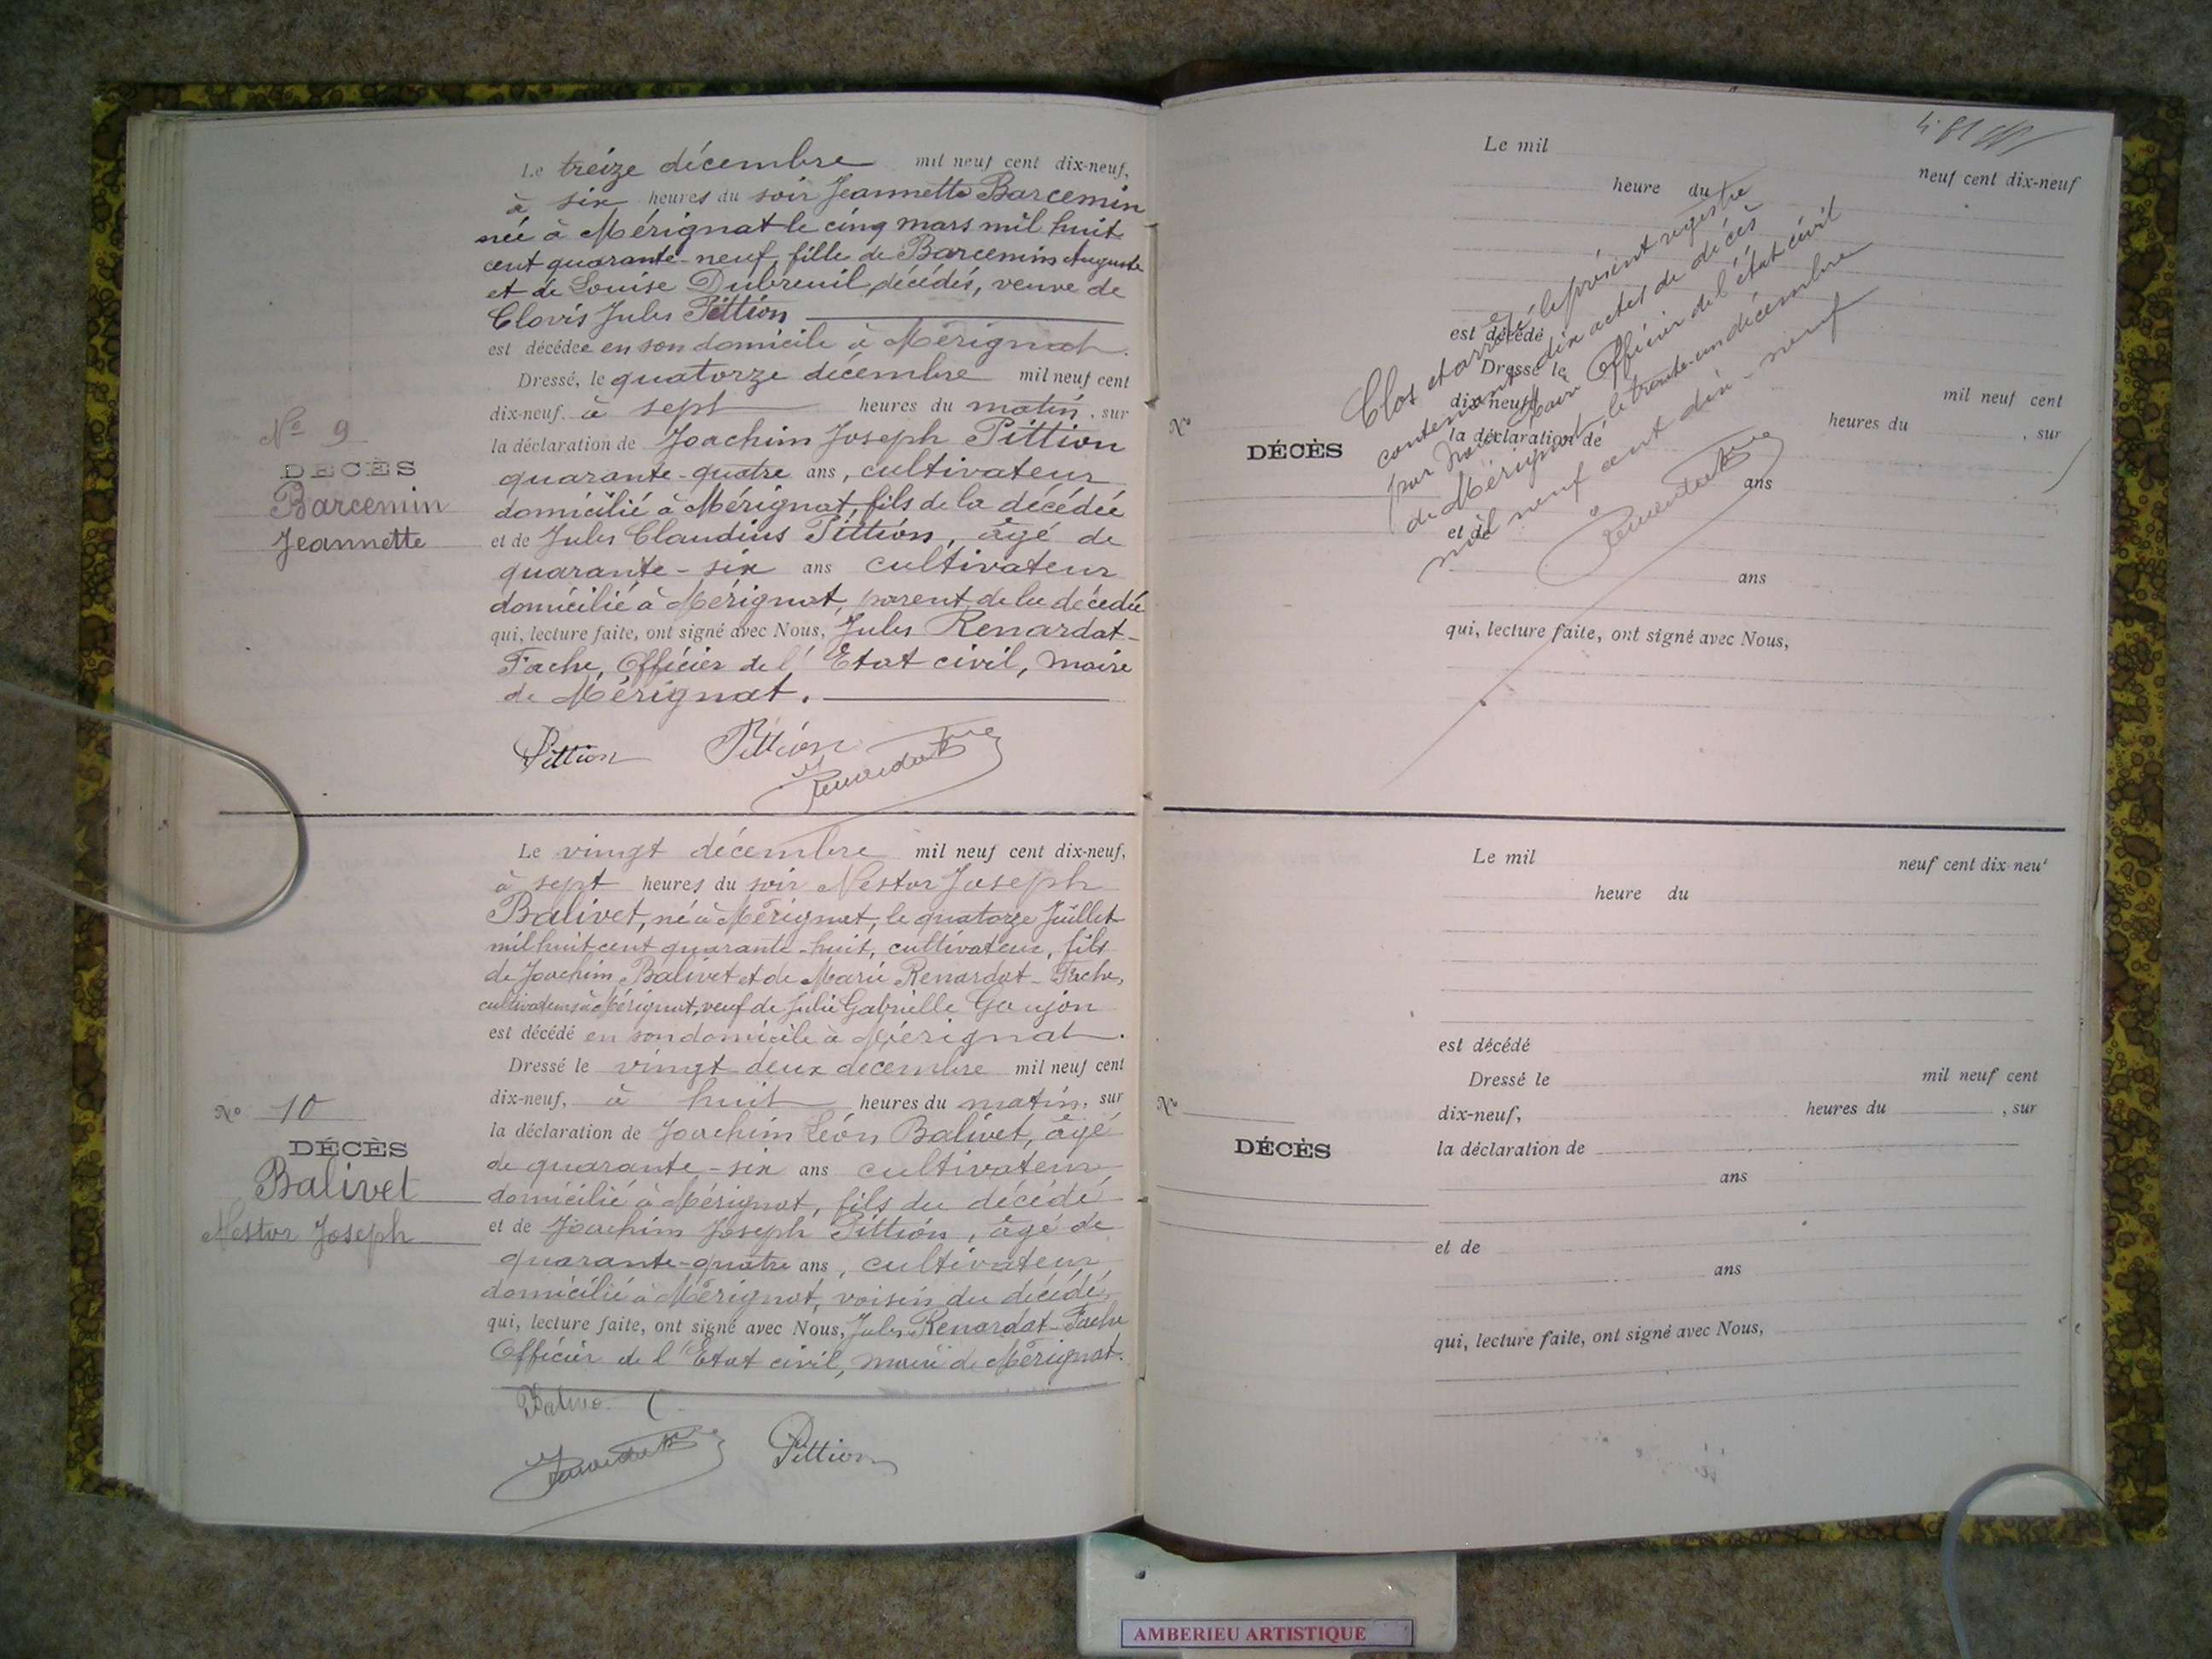 Le treize décembre mil neuf cent dix-neuf,
à six heures du soir Jeannette Barcemin
née à Mérignat le cinq mars mil huit
cent quarante-neuf, fille de Barcemin Auguste
et de Louise Dubreuil décédés, veuve de
Clovis Jules Pittion
est décédée en son domicile à Mérignat.
Dressé, le quatorze décembre mil neuf cent
dix-neuf, à sept heures du matin, sur
la déclaration de Joachim Joseph Pittion
quarante-quatre ans, cultivateur
domicilié à Mérignat, fils de la décédée
et de Jules Claudius Pittion, âgé de
quarante-six ans cultivateur
domicilié à Mérignat, parent de la décédée
qui, lecture faite, ont signé avec Nous, Jules Renardat-
Fache, Officier de l'Etat civil, maire
de Mérignat.
Pittion Pittion
Renardat
No 9
DÉCÈS
Barcemin
Jeannette
Le vingt décembre mil neuf cent dix-neuf,
à sept heures du soir Nestor Joseph
Balivet, né à Mérignat, le quatorze Juillet
mil huit cent quarante-huit, cultivateur, fils
de Joachim Balivet et de Marie Renardat-Fache,
cultivateurs à Mérignat, veuf de Julie Gabrielle Goujon
est décédé en son domicile à Mérignat.
Dressé le vingt deux décembre mil neuf cent
dix-neuf, à huit heures du matin, sur
la déclaration de Joachim Léon Balivet, âgé
de quarante-six ans cultivateur
domicilié à Mérignat, fils du décédé
et de Joachim Joseph Pittion, âgé de
quarante-quatre ans, cultivateur
domicilié à Mérignat, voisin du décédé,
qui, lecture faite, ont signé avec Nous, Jules Renardat-Fache
Officier de l'Etat civil, maire de Mérignat.
Renardat Pittion
No 10
DÉCÈS
Balivet
Nestor Joseph
Le mil neuf cent dix-neuf
heure du
est décédé
Dressé le mil neuf cent
dix-neuf, heures du , sur
la déclaration de
ans
et de
ans
qui, lecture faite, ont signé avec Nous,
No
DÉCÈS
Clos et arrêté le présent registre
contenant dix actes de décès
par Nous Maire Officier de l'état civil
de Mérignat le trente-un décembre
mil neuf cent dix-neuf
Renardat
Le mil neuf cent dix-neu
heure du
est décédé
Dressé le mil neuf cent
dix-neuf, heures du , sur
la déclaration de
ans
et de
ans
qui, lecture faite, ont signé avec Nous,
No
DÉCÈS
AMBERIEU ARTISTIQUE